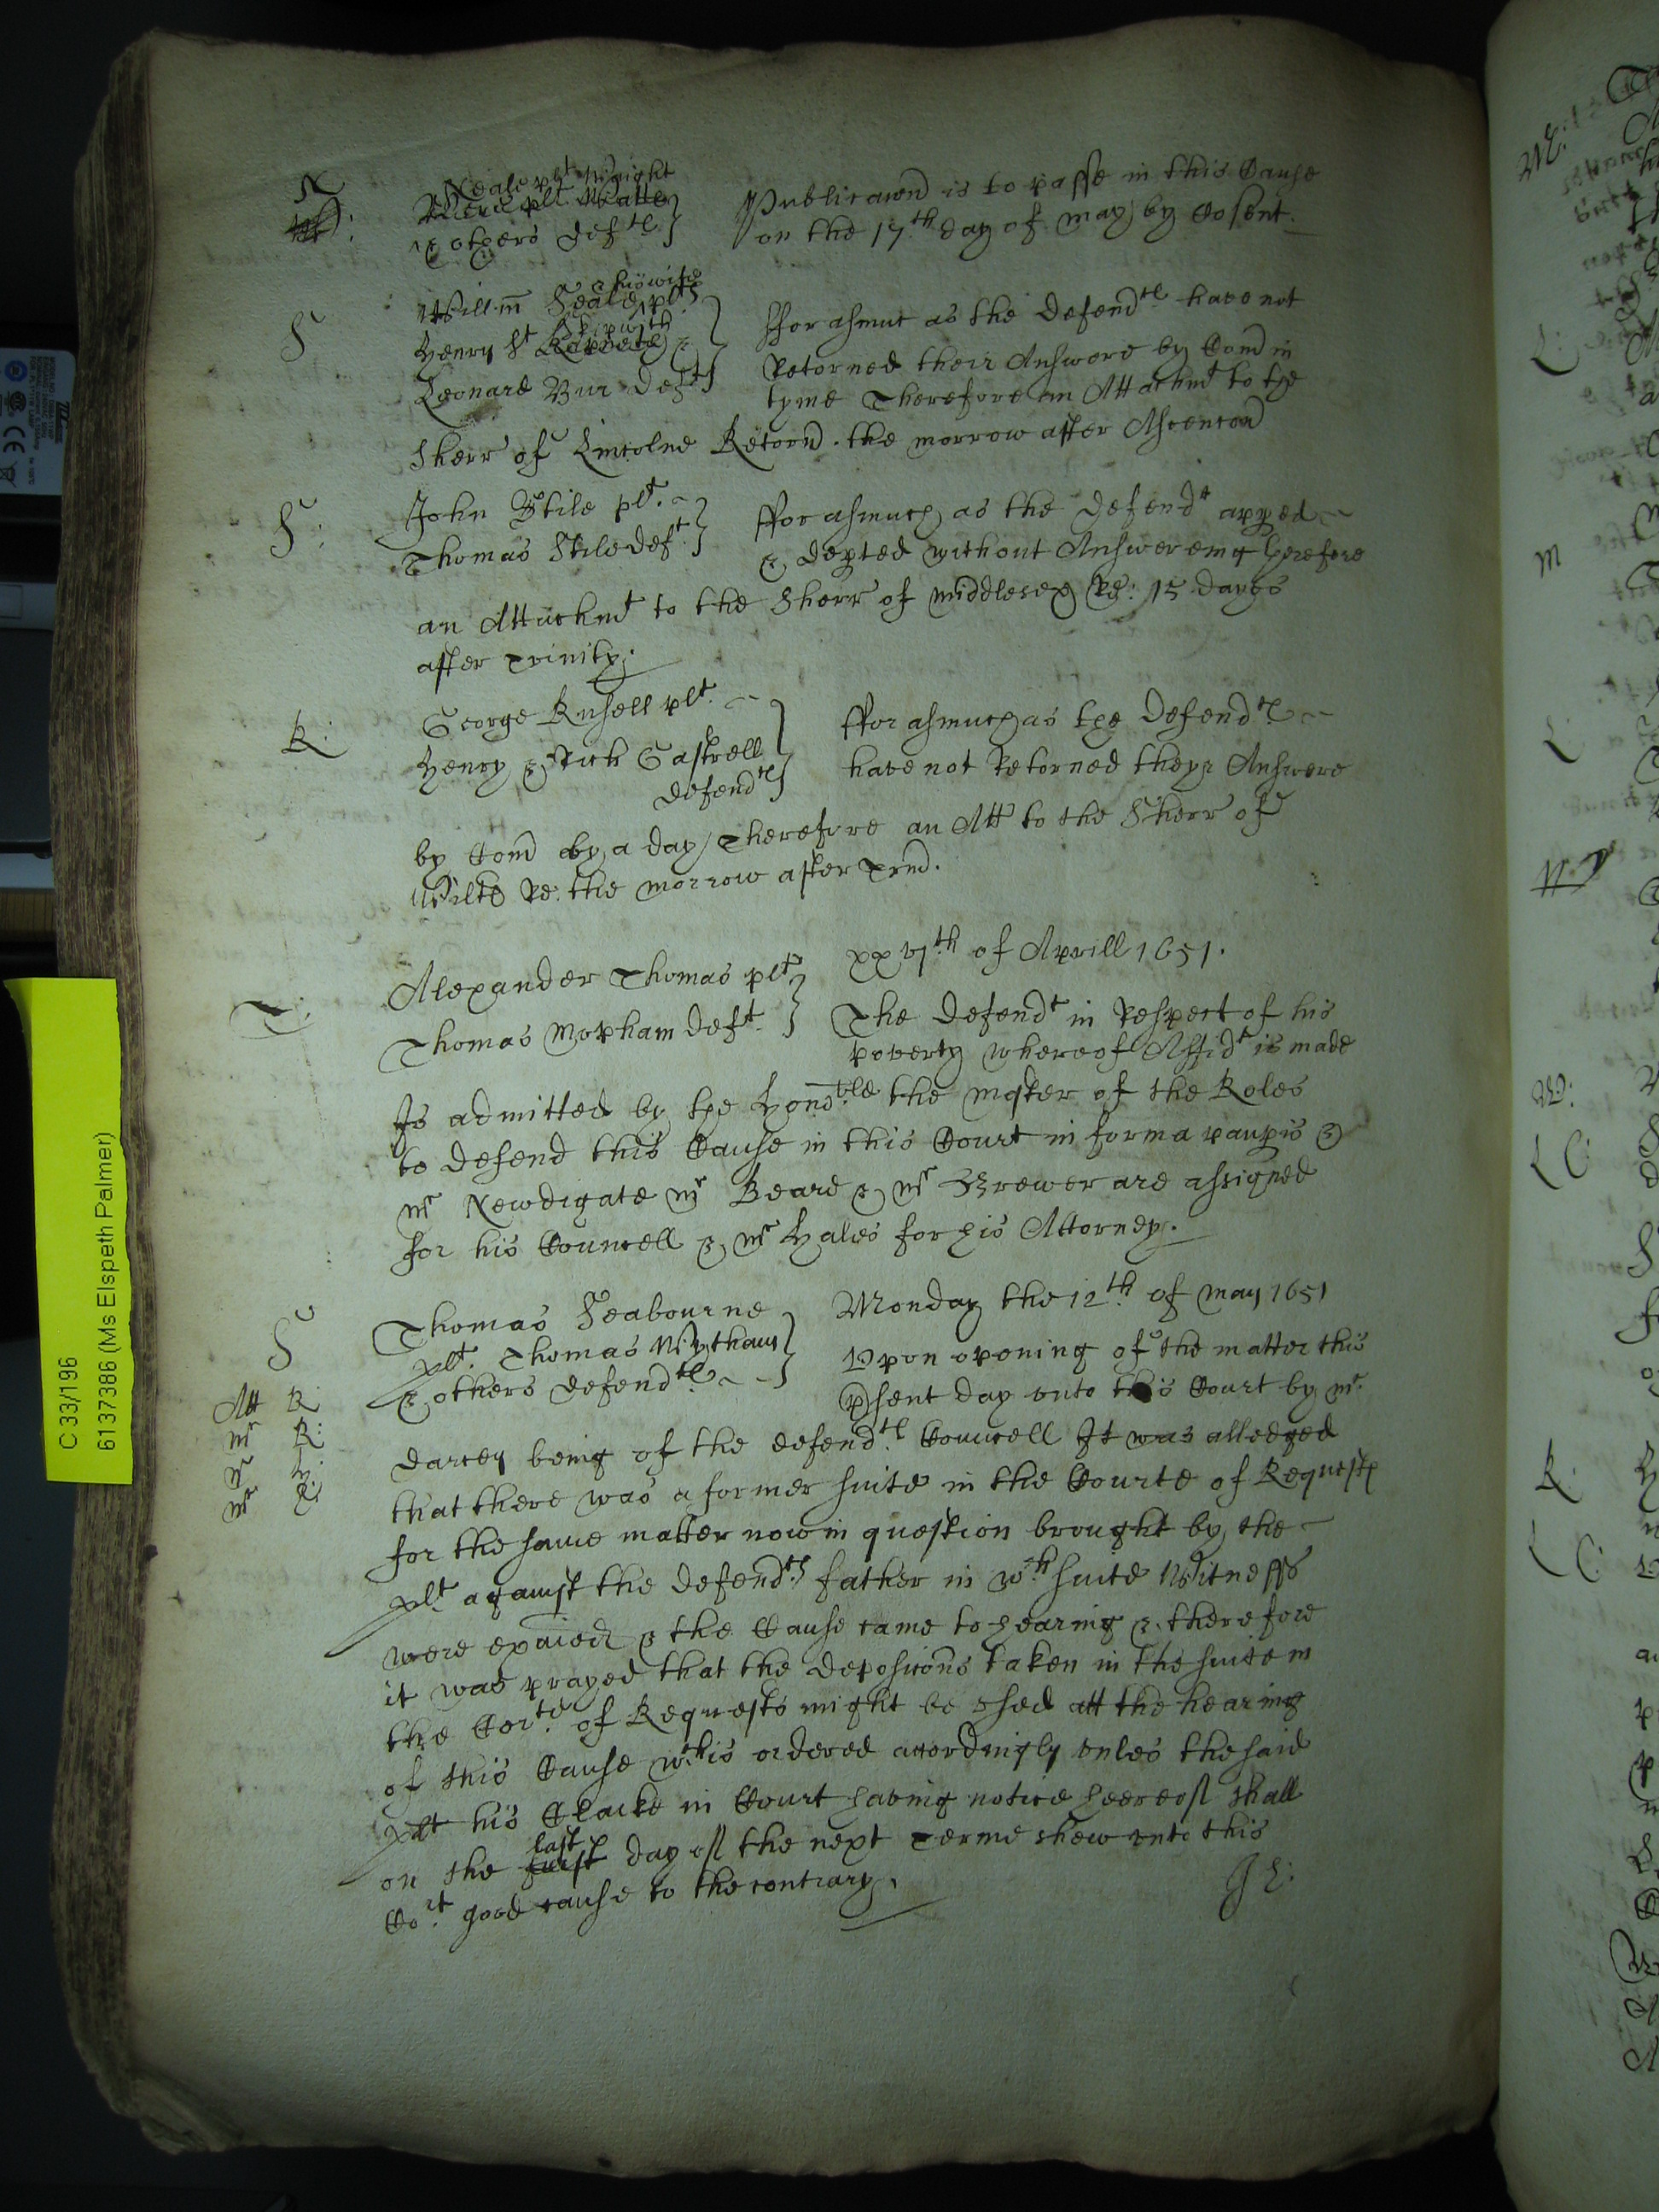 N
Neale plt Wright
& others Deft
Publicacond is to passe in this Cause
on the 17th day of may by Cosent.
S
& his wife
Will:m Seale plts
Henry St Skipwith &
Leonard Bur Defts
fforasmuc as the Defendts have not
Retorned their Answere by Comd in
tyme Therefore an Attachmt to the
Sherr of Lincolne Retornd. the morrow after Ascencond
S:
John Stile plt.
Thomas Stile deft.
fforasmuch as the Defendt apped
& depted without Answereing therefore
an Attachmt to the Sherr of middlesex Re: 15 dayes
after Trinity.
R:
George Rusell plt.
Henry & Rich Gastrell
Defendts
fforasmuch as the Defendts
have not Retorned theyr Answere
by Comd by a day Therefore an Att to the Sherr of
Wilts Re: the morrow after Trnd.
xxvjth of Aprill 1651.
T:
Alexander Thomas plt
Thomas Mopham Deft.
The Defendt in Respect of his
poverty whereof Affidt is made
Is admitted by the Honoble the Master of the Roles
to defend this Cause in this Court in forma paupis &
mr Newdigate mr Beare & mr Brewer are assigned
for his Councell & mr Hales for his Attorney.
S
Thomas Seabourne
plt. Thomas Wytham
& others Defendts
Monday the 12th of may 1651
Att R
mr R:
mr H:
mr E:
Upon opening of the matter this
psent day unto this Court by mr.
Darcey being of the defendts Councell It was alledged
that there was a former suite in the Courte of Requests
for the same matter now in question brought by the
plt against the Defendts father in wch suite Witnesses
were exaied & the Cause came to hearing & therefore
it was prayed that the deposicons taken in the suite in
the Corte of Requests might be used att the hearing
of this Cause wch is ordered accordingly unles the said
plt his Clarke in Court having notice heereof shall
last
on the first day of the next Terme shew unto this
Cort good cause to the contrary.
C 33/196
6137386 (Ms Elspeth Palmer)